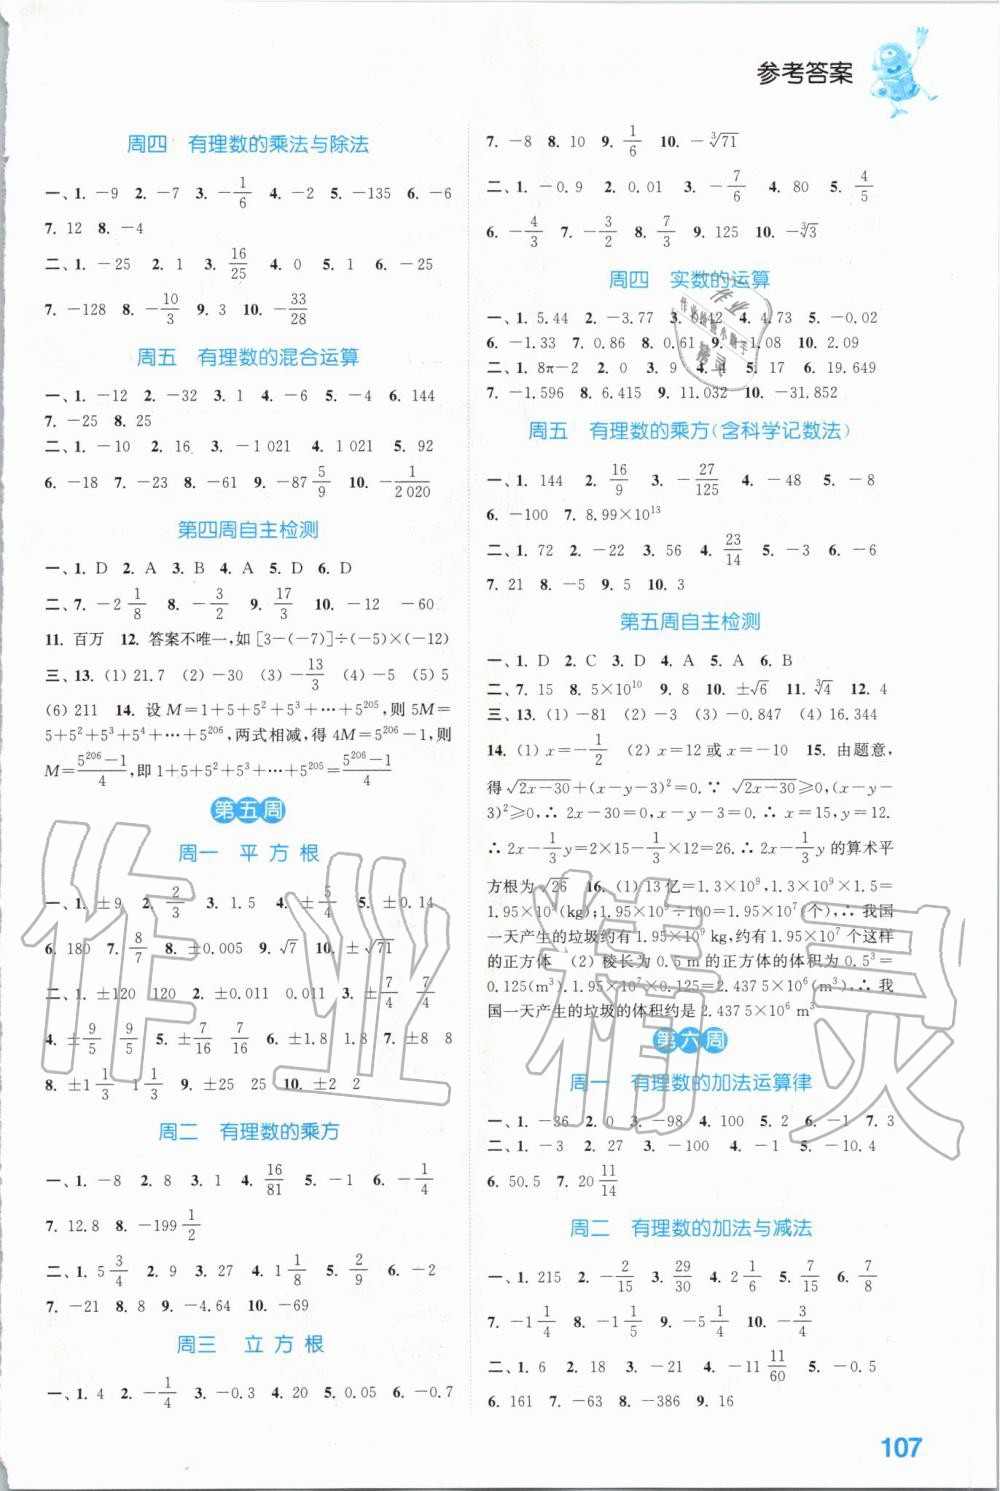 参考答案
周四 有理数的乘法与除法
一、1. －9 2. －7 3. －1/6 4. －2 5. －135 6. －6
7. 12 8. －4
二、1. －25 2. 1 3. 16/25 4. 0 5. 1 6. －25
7. －128 8. －10/3 9. 3 10. －33/28
周五 有理数的混合运算
一、1. －12 2. －32 3. 1 4. －6 5. －4 6. 144
7. －25 8. 25
二、1. －10 2. 16 3. －1 021 4. 1 021 5. 92
6. －18 7. －23 8. －61 9. －87 5/9 10. －1/2 020
第四周自主检测
一、1. D 2. A 3. B 4. A 5. D 6. D
二、7. －2 1/8 8. －3/2 9. 17/3 10. －12 －60
11. 百万 12. 答案不唯一,如[3－(－7)]÷(－5)×(－12)
三、13. (1) 21.7 (2) －30 (3) －13/3 (4) －5 (5) 5
(6) 211 14. 设 M＝1＋5＋5²＋5³＋…＋5²⁰⁵,则 5M＝
5＋5²＋5³＋5⁴＋…＋5²⁰⁶,两式相减,得 4M＝5²⁰⁶－1,则
M＝(5²⁰⁶－1)/4,即 1＋5＋5²＋5³＋…＋5²⁰⁵＝(5²⁰⁶－1)/4
第五周
周一 平方根
一、1. ±9 2. 2/3 3. 1.5 4. ±5/4 5. ±0.14
6. 180 7. 8/7 8. ±0.005 9. √7 10. ±√71
二、1. ±120 120 2. ±0.011 0.011 3. ±7/4 7/4
4. ±9/5 9/5 5. ±7/16 7/16 6. ±1.8 1.8 7. ±8 8
8. ±1 1/3 1 1/3 9. ±25 25 10. ±2 2
周二 有理数的乘方
一、1. －8 2. 8 3. 1 4. 16/81 5. －1 6. －1/4
7. 12.8 8. －199 1/2
二、1. 5 3/4 2. 9 3. 27 4. 1 1/8 5. 2/9 6. －2
7. －21 8. 8 9. －4.64 10. －69
周三 立方根
一、1. 4 2. －1/4 3. －0.3 4. 20 5. 0.05 6. －0.7
7. －8 8. 10 9. 1/6 10. －∛71
二、1. －0.9 2. 0.01 3. －7/6 4. 80 5. 4/5
6. －4/3 7. －3/2 8. 7/3 9. 125 10. －∛3
周四 实数的运算
一、1. 5.44 2. －3.77 3. 0.42 4. 4.73 5. －0.02
6. －1.33 7. 0.86 8. 0.61 9. －1.08 10. 2.09
二、1. 8π－2 2. 0 3. 9 4. 4 5. 17 6. 19.649
7. －1.596 8. 6.415 9. 11.032 10. －31.852
周五 有理数的乘方(含科学记数法)
一、1. 144 2. 16/9 3. －27/125 4. －48 5. －8
6. －100 7. 8.99×10¹³
二、1. 72 2. －22 3. 56 4. 23/14 5. －3 6. －6
7. 21 8. －5 9. 5 10. 3
第五周自主检测
一、1. D 2. C 3. D 4. A 5. A 6. B
二、7. 15 8. 5×10¹⁰ 9. 8 10. ±√6 11. ∛4 12. 4
三、13. (1) －81 (2) －3 (3) －0.847 (4) 16.344
14. (1) x＝－1/2 (2) x＝12或x＝－10 15. 由题意,
得√(2x－30)＋(x－y－3)²＝0.∵ √(2x－30)≥0,(x－y－
3)²≥0,∴ 2x－30＝0,x－y－3＝0.∴ x＝15,y＝12.
∴ 2x－1/3 y＝2×15－1/3×12＝26.∴ 2x－1/3 y 的算术平
方根为√26 16. (1) 13 亿＝1.3×10⁹,1.3×10⁹×1.5＝
1.95×10⁹(kg);1.95×10⁹÷100＝1.95×10⁷(个),∴ 我国
一天产生的垃圾约有 1.95×10⁹ kg,约有 1.95×10⁷ 个这样
的正方体 (2) 棱长为 0.5 m 的正方体的体积为 0.5³＝
0.125(m³).1.95×10⁷×0.125＝2.437 5×10⁶(m³),∴ 我
国一天产生的垃圾的体积约是 2.437 5×10⁶ m³
第六周
周一 有理数的加法运算律
一、1. －36 2. 0 3. －98 4. 100 5. 2 6. －1 7. 3
二、1. －3 2. 27 3. －100 4. －1 5. －10.4
6. 50.5 7. 20 11/14
周二 有理数的加法与减法
一、1. 215 2. －2/15 3. 29/30 4. 2 1/6 5. 7/15 6. 7/8
7. －1 1/4 8. －1 1/5 9. －5 1/4 10. －3/4
二、1. 6 2. 18 3. －21 4. －11 11/60 5. －0.5
6. 161 7. －63 8. －386 9. 16
107
作业精灵